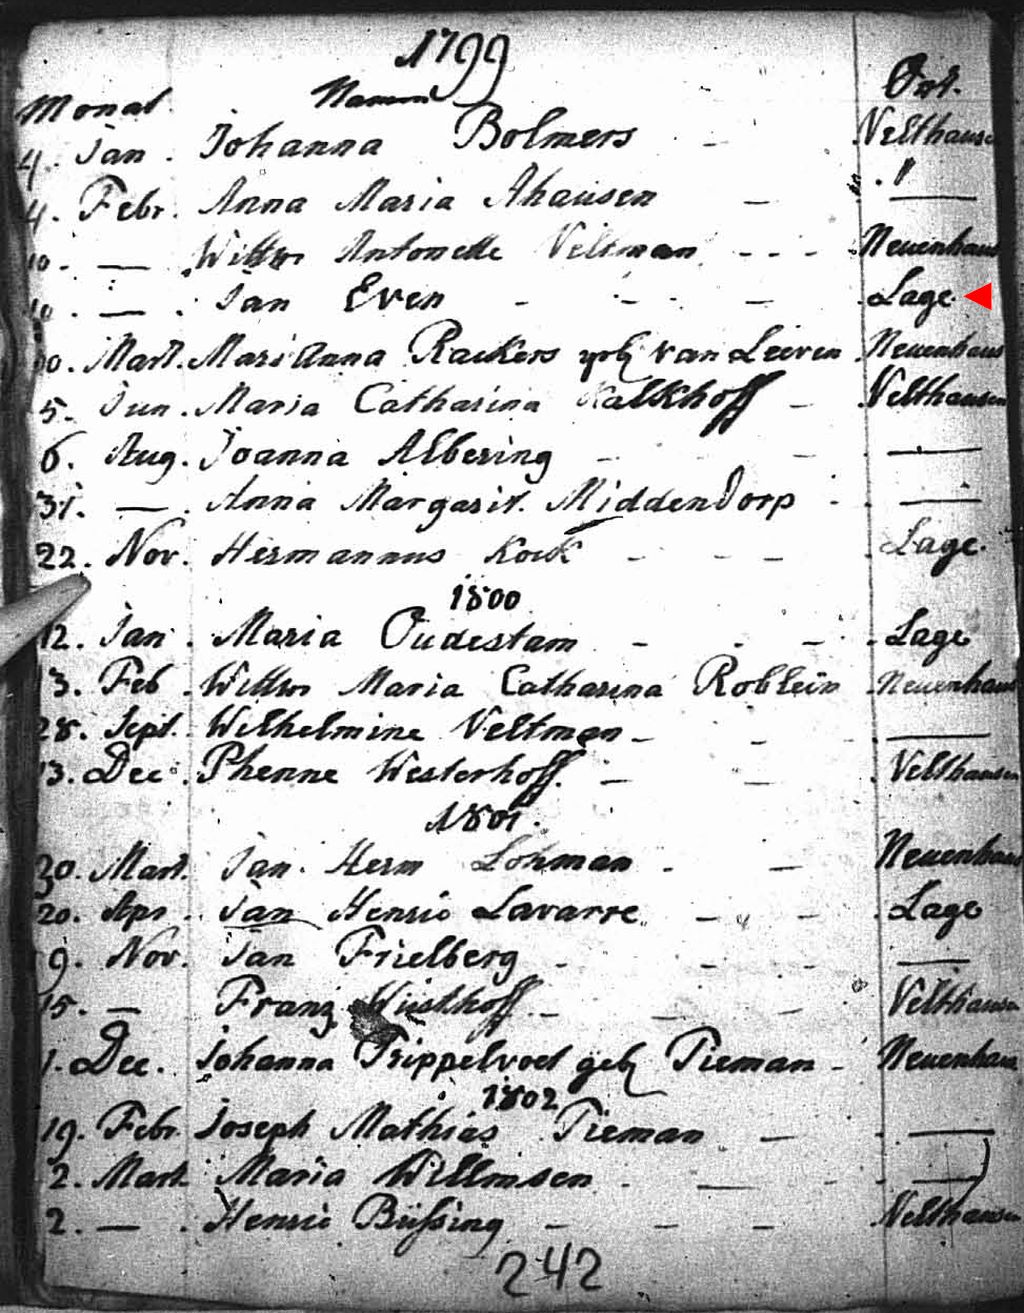 1799
Monat Namen Ort.
4. Jan. Johanna Bolmers - Velthausen
4. Febr. Anna Maria Ahausen - . " —
10. — Wittw Antonette Veltman - - - Neuenhaus
10. — . Jan Even - - - Lage
Mart. Marianna Rackers geb van Leeven Neuenhaus
5. Jun. Maria Catharina Kalkhoff - Velthausen
6. Aug. Joanna Albering - - —
31. — . Anna Margarit. Middendorp - —
22. Nov. Hermannus Kock - - - Lage.
1800
12. Jan. Maria Oudestam - - - Lage
13. Feb. Wittw Maria Catharina Roblein Neuenhaus
28. Sept. Wilhelmine Veltman - - —
13. Dec. Phenne Westerhoff. - - Velthausen
1801.
20. Mart. Jan. Herm Lohman - - Neuenhaus
20. Apr. Jan Henric Lavarre - - - Lage
9. Nov. Jan Frielberg - - - —
15. — Franz Westhoff - - - Velthausen
1. Dec. Johanna Trippelvoet geb Tieman - Neuenhaus
1802
19. Febr. Joseph Mathias Tieman - —
2. Mart. Maria Willmsen - - - —
2. — . Henric Büssing - - - Velthausen
242